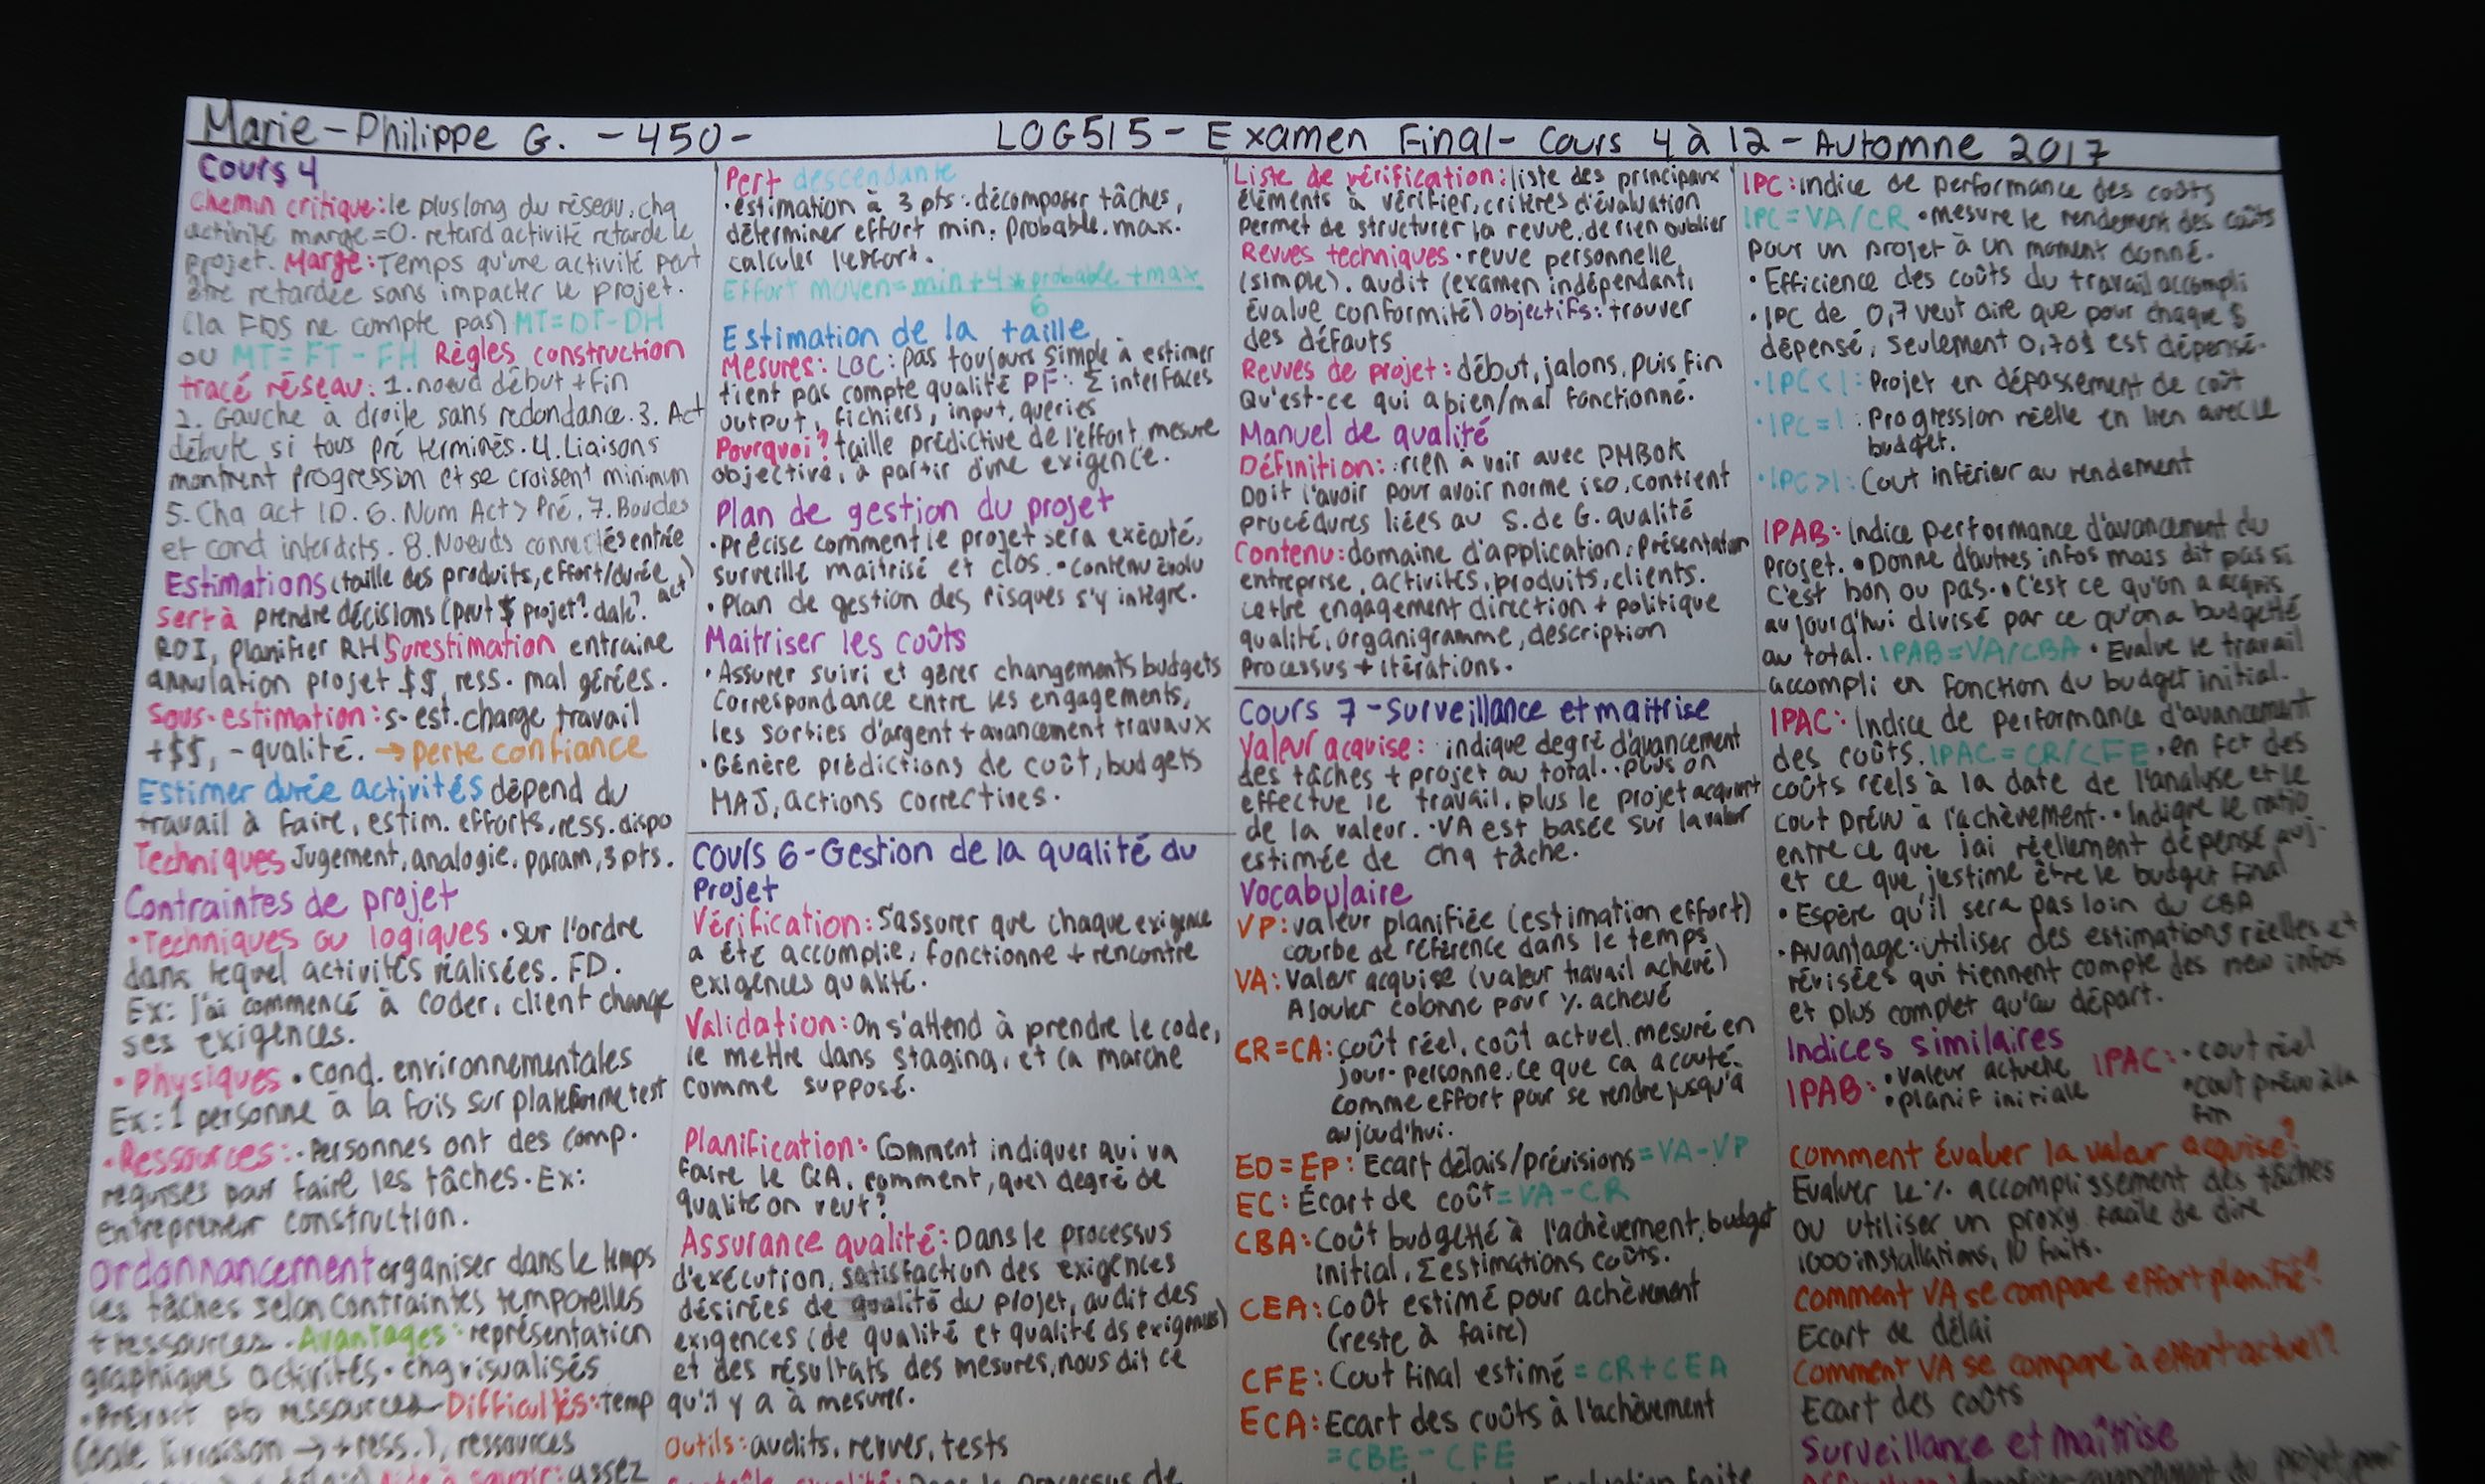 Marie-Philippe G. -450- LOG515- Examen Final- Cours 4 à 12 - Automne 2017
Cours 4
Chemin critique: le plus long du réseau. chq
activité marge=0. retard activité retarde le
projet. Marge: Temps qu'une activité peut
être retardée sans impacter le projet.
(la FDS ne compte pas) MT=DT-DH
ou MT=FT-FH Règles construction
tracé réseau: 1. noeud début + fin
2. Gauche à droite sans redondance. 3. Act
débute si tous pré terminés. 4. Liaisons
montrent progression et se croisent minimum
5. Chq act ID. 6. Num Act > Pré. 7. Boucles
et cond interdits. 8. Noeuds connectés entrée
Estimations (taille des produits, effort/durée act)
sert à prendre décisions (peut $ projet? date?
ROI, planifier RH Surestimation entraine
annulation projet $$, ress. mal gérées.
Sous-estimation: s-est. charge travail
+$$, -qualité. → perte confiance
Estimer durée activités dépend du
travail à faire, estim. efforts, ress. dispo
Techniques Jugement, analogie, param, 3pts.
Contraintes de projet
• Techniques ou logiques • sur l'ordre
dans lequel activités réalisées. FD.
Ex: J'ai commencé à coder, client change
ses exigences.
• Physiques • Cond. environnementales
Ex: 1 personne à la fois sur plateforme test
• Ressources: • Personnes ont des comp.
requises pour faire les tâches. Ex:
entrepreneur construction.
Ordonnancement organiser dans le temps
les tâches selon contraintes temporelles
+ ressources. Avantages: représentation
graphiques activités • chq visualisés
pb ressources Difficultés: temp
livraison → + ress.), ressources
assez
Pert descendante
• estimation à 3 pts: décomposer tâches,
déterminer effort min. probable. max.
calculer l'effort.
Effort moyen = min + 4 * probable + max
6
Estimation de la taille
Mesures: LOC: pas toujours simple à estimer
tient pas compte qualité PF: Σ interfaces
output, fichiers, input, queries
Pourquoi? taille prédictive de l'effort, mesure
objective, à partir d'une exigence.
Plan de gestion du projet
• Précise comment le projet sera exécuté,
surveillé maitrisé et clos. • contenu évolu
• Plan de gestion des risques s'y intègre.
Maitriser les coûts
• Assurer suivi et gérer changements budgets
Correspondance entre les engagements,
les sorties d'argent + avancement travaux
• Génère prédictions de coût, budgets
MAJ, actions correctives.
Cours 6-Gestion de la qualité du
Projet
Vérification: S'assurer que chaque exigence
a été accomplie, fonctionne + rencontre
exigences qualité.
Validation: On s'attend à prendre le code,
le mettre dans staging, et ca marche
comme supposé.
Planification: Comment indiquer qui va
faire le QA, comment, quel degré de
qualité on veut?
Assurance qualité: Dans le processus
d'exécution, satisfaction des exigences
désirées de qualité du projet, audit des
exigences (de qualité et qualité ds exigences)
et des résultats des mesures, nous dit ce
qu'il y a à mesurer.
Outils: audits, revues, tests
Dans le processus de
Liste de vérification: liste des principaux
éléments à vérifier, critères d'évaluation
Permet de structurer la revue, de rien oublier
Revues techniques • revue personnelle
(simple). audit (examen indépendant,
évalue conformité) objectifs: trouver
des défauts
Revues de projet: début, jalons, puis fin
Qu'est-ce qui a bien/mal fonctionné.
Manuel de qualité
Définition: rien à voir avec PMBOK
Doit l'avoir pour avoir norme iso, contient
procédures liées au S. de G. qualité
Contenu: domaine d'application, Présentation
entreprise, activités, produits, clients.
Lettre engagement direction + politique
qualité, organigramme, description
Processus + itérations.
Cours 7-Surveillance et maitrise
Valeur acquise: indique degré d'avancement
des tâches + projet au total. • plus on
effectue le travail, plus le projet acquiert
de la valeur. • VA est basée sur la valeur
estimée de chq tâche.
Vocabulaire
VP: valeur planifiée (estimation effort)
courbe de référence dans le temps
VA: Valeur acquise (valeur travail achevé)
Ajouter colonne pour % achevé
CR=CA: coût réel, coût actuel. mesuré en
jour-personne. Ce que ca a couté
comme effort pour se rendre jusqu'à
aujourd'hui.
ED=EP: Ecart délais/prévisions = VA-VP
EC: Écart de coût = VA-CR
CBA: Coût budgetté à l'achèvement, budget
initial, Σ estimations coûts.
CEA: Coût estimé pour achèvement
(reste à faire)
CFE: Cout final estimé = CR+CEA
ECA: Ecart des coûts à l'achèvement
=CBE-CFE
Evaluation faite
IPC: indice de performance des coûts
IPC=VA/CR • mesure le rendement des coûts
pour un projet à un moment donné.
• Efficience des coûts du travail accompli
• IPC de 0,7 veut dire que pour chaque $
dépensé, seulement 0,70$ est dépensé.
• IPC<1: Projet en dépassement de coût
• IPC=1: Progression réelle en lien avec le
budget.
• IPC>1: Cout inférieur au rendement
IPAB: Indice performance d'avancement du
Projet. • Donne d'autres infos mais dit pas si
c'est bon ou pas. • C'est ce qu'on a acquis
aujourd'hui divisé par ce qu'on a budgetté
au total. IPAB=VA/CBA • Evalue le travail
accompli en fonction du budget initial.
IPAC: Indice de performance d'avancement
des coûts. IPAC=CR/CFE. en fct des
coûts réels à la date de l'analyse et le
cout prévu à l'achèvement. • Indique le ratio
entre ce que j'ai réellement dépensé auj-
et ce que j'estime être le budget final
• Espère qu'il sera pas loin du CBA
• Avantage: utiliser des estimations réelles et
révisées qui tiennent compte des new infos
et plus complet qu'au départ.
Indices similaires
IPAB: • valeur actuelle IPAC: • cout réel
• planif initiale • cout prévu à la
fin
Comment évaluer la valeur acquise?
Evaluer le % accomplissement des tâches
ou utiliser un proxy facile de dire
1000 installations, 10 faits.
Comment VA se compare effort planifié?
Ecart de délai
Comment VA se compare à effort actuel?
Ecart des coûts
Surveillance et maîtrise